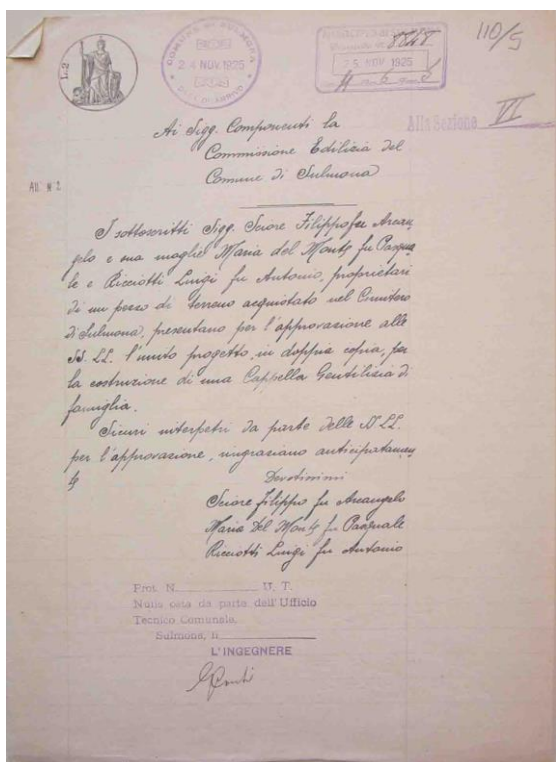 110/5
L. 2
COMUNE DI SULMONA
24 NOV 1925
8848
25 NOV 1925
Alla Sezione VI
Ai Sigg. Componenti la
Commissione Edilizia del
Comune di Sulmona
All. N° 2
I sottoscritti Sigg. Sciore Filippo fu Arcan
gelo e sua moglie Maria del Monte fu Pasqua
le e Ricciotti Luigi fu Antonio, proprietari
di un pezzo di terreno acquistato nel Cimitero
di Sulmona, presentano per l'approvazione alle
SS. LL. l'unito progetto, in doppia copia, per
la costruzione di una Cappella Gentilizia di
famiglia.
Sicuri interpetri da parte delle SS. LL.
per l'approvazione, ringraziano anticipatamen
te
Devotissimi
Sciore Filippo fu Arcangelo
Maria Del Monte fu Pasquale
Ricciotti Luigi fu Antonio
Prot. N. U. T.
Nulla osta da parte dell'Ufficio
Tecnico Comunale.
Sulmona, li
L'INGEGNERE